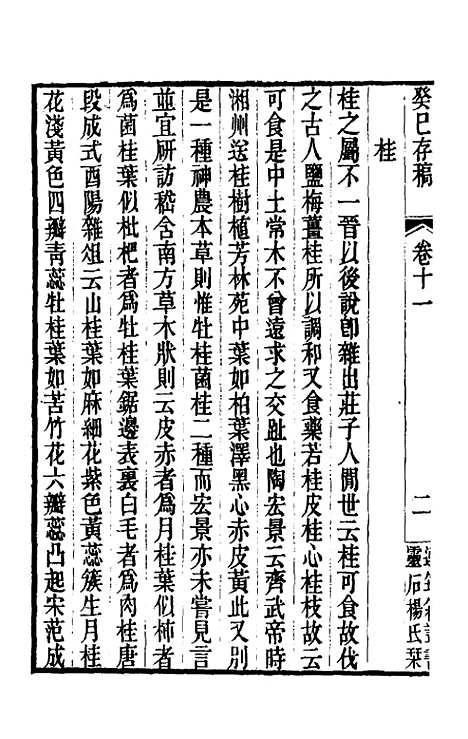 癸巳存稿 卷十一 二
靈石楊氏栞
桂
桂之屬不一晉以後說卽雜出莊子人閒世云桂可食故伐
之古人鹽梅薑桂所以調和又食藥若桂皮桂心桂枝故云
可食是中土常木不曾遠求之交趾也陶宏景云齊武帝時
湘州送桂樹植芳林苑中葉如柏葉澤黑心赤皮黃此又別
是一種神農本草則惟牡桂菌桂二種而宏景亦未嘗見言
並宜硏訪嵇含南方草木狀則云皮赤者爲月桂葉似柿者
爲菌桂葉似枇杷者爲牡桂葉鋸邊表裏白毛者爲肉桂唐
段成式酉陽雜俎云山桂葉如麻細花紫色黃蕊簇生月桂
花淺黃色四瓣靑蕊牡桂葉如苦竹花六瓣蕊凸起宋范成